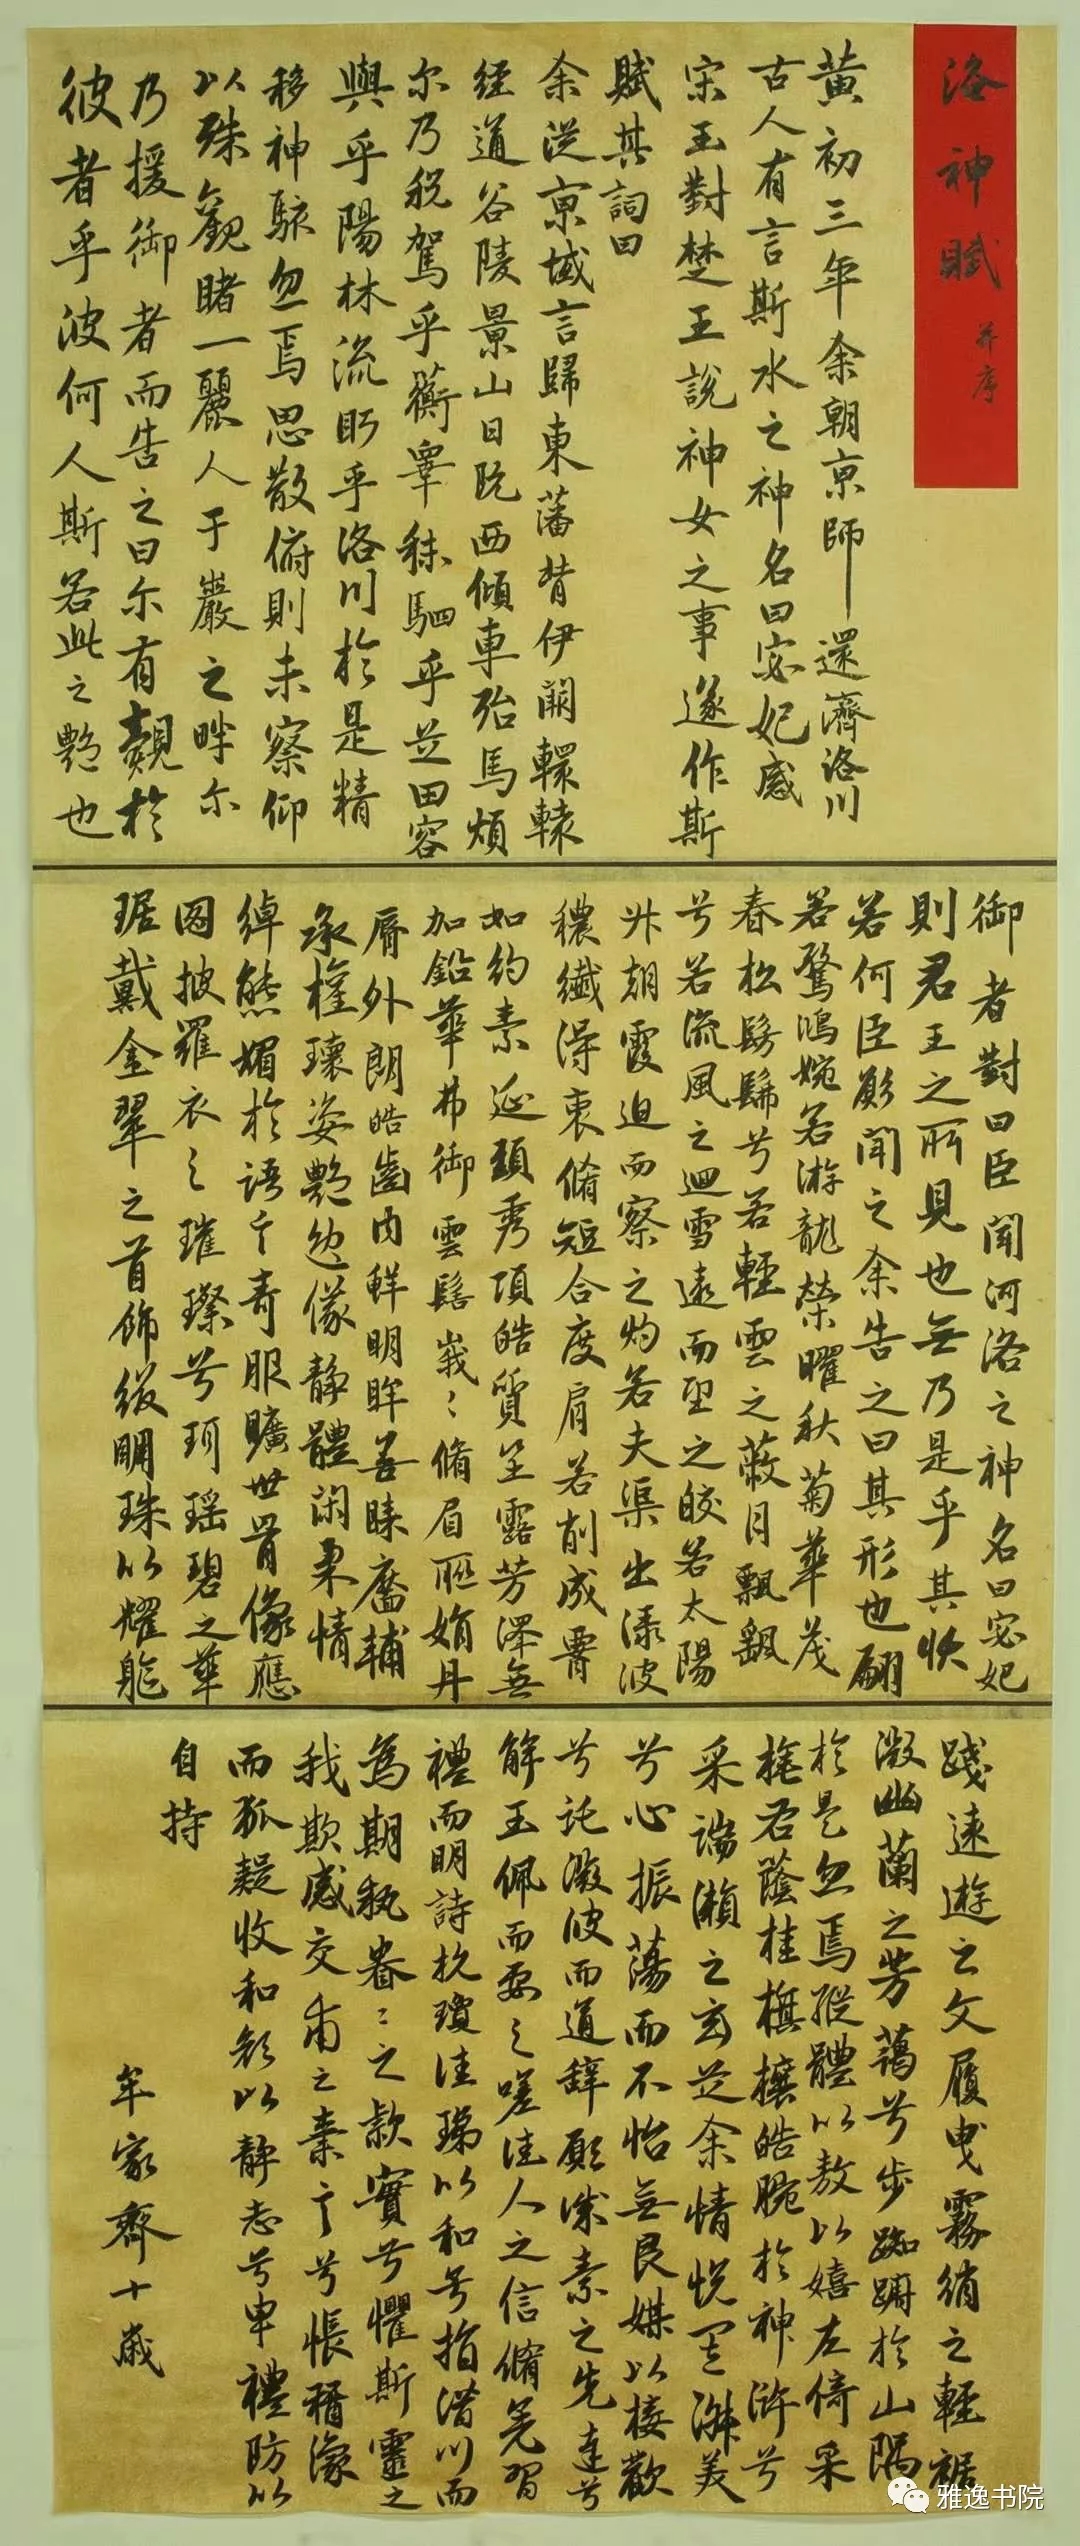 洛神賦
并序
黃初三年余朝京師還濟洛川
古人有言斯水之神名曰宓妃感
宋玉對楚王說神女之事遂作斯
賦其詞曰
余從京域言歸東藩背伊闕轘轅
經通谷陵景山日既西傾車殆馬煩
尔乃稅駕乎蘅皋秣駟乎芝田容
與乎陽林流眄乎洛川於是精
移神駭忽焉思散俯則未察仰
以殊觀睹一麗人于巖之畔尔
乃援御者而告之曰尔有覿於
彼者乎彼何人斯若此之艷也
御者對曰臣聞河洛之神名曰宓妃
則君王之所見也無乃是乎其狀
若何臣願聞之余告之曰其形也翩
若驚鴻婉若游龍榮曜秋菊華茂
春松髣髴兮若輕雲之蔽月飄颻
兮若流風之迴雪遠而望之皎若太陽
升朝霞迫而察之灼若夫渠出淥波
穠纖得衷脩短合度肩若削成膏
如約素延頸秀項皓質呈露芳澤無
加鉛華弗御雲髻峩〻脩眉聯娟丹
脣外朗皓齒內鮮明眸善睞靨輔
承權瓌姿艷逸儀靜體閑柔情
綽態媚於語言奇服曠世骨像應
圖披羅衣之璀璨兮珥瑤碧之華
琚戴金翠之首飾綴明珠以耀軀
踐遠遊之文履曳霧綃之輕裾
微幽蘭之芳藹兮步踟躕於山隅
於是忽焉縱體以敖以嬉左倚采
旄右蔭桂旗攘皓腕於神滸兮
采湍瀨之玄芝余情悅其淑美
兮心振蕩而不怡無良媒以接歡
兮託微波而通辭願誠素之先達兮
解玉佩而要之嗟佳人之信脩羌習
禮而明詩抗瓊珶以和兮指潛川而
為期執眷〻之款實兮懼斯靈之
我欺感交甫之棄言兮悵猶豫
而狐疑收和顏以靜志兮申禮防以
自持
牟家齊十歲
雅逸书院